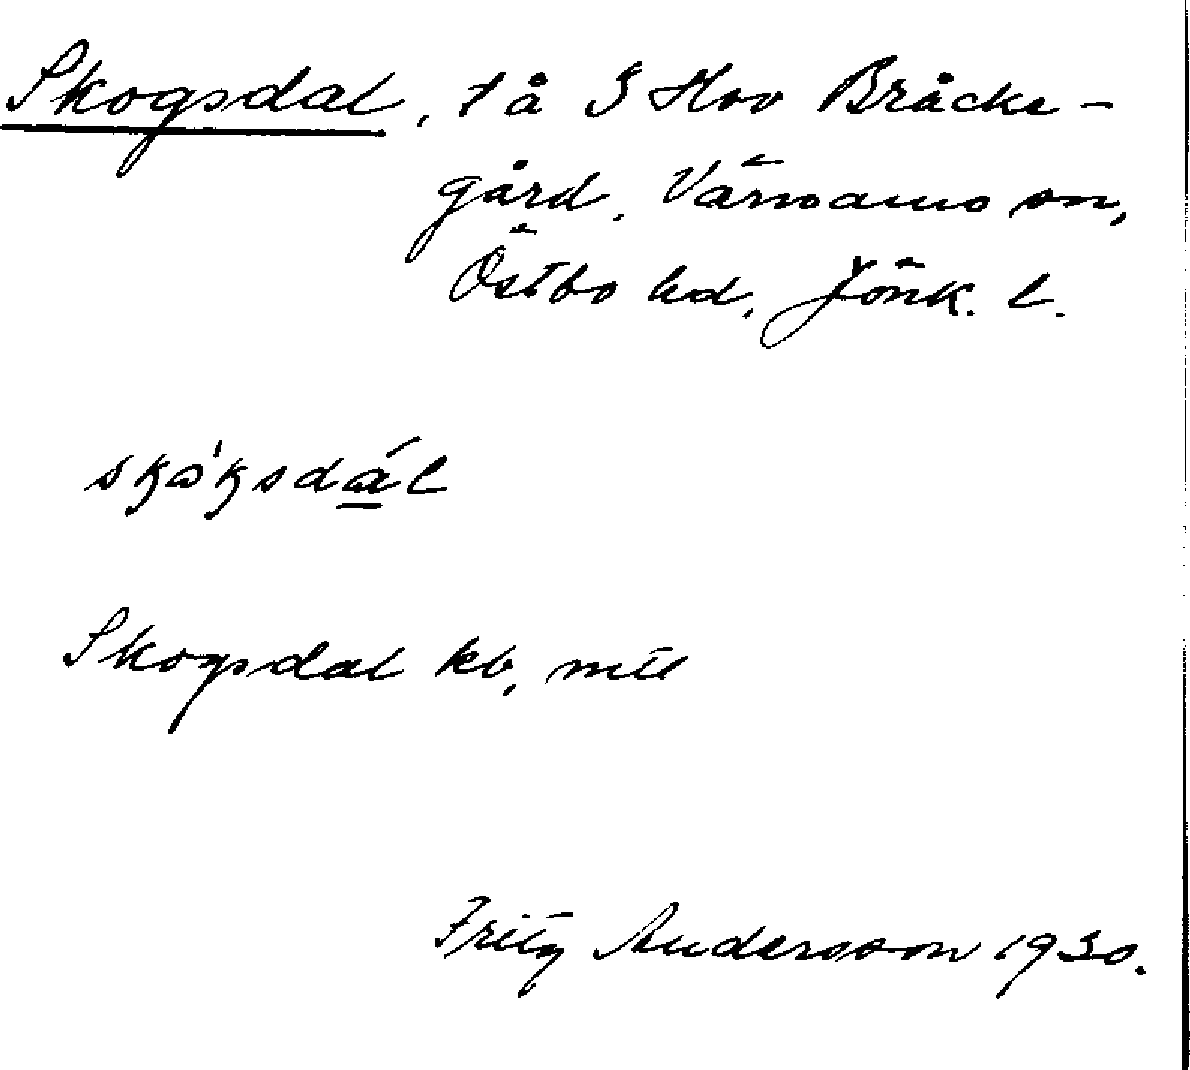 Skogsdal, t å S Hov Bråcke-
gård, Värnamo sn,
Östbo hd, Jönk. l.
Skogsdal kb, mtl
Fritz Andersson 1930.